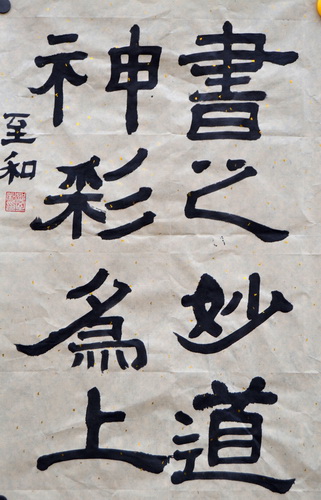 書之妙道
神彩為上
至和